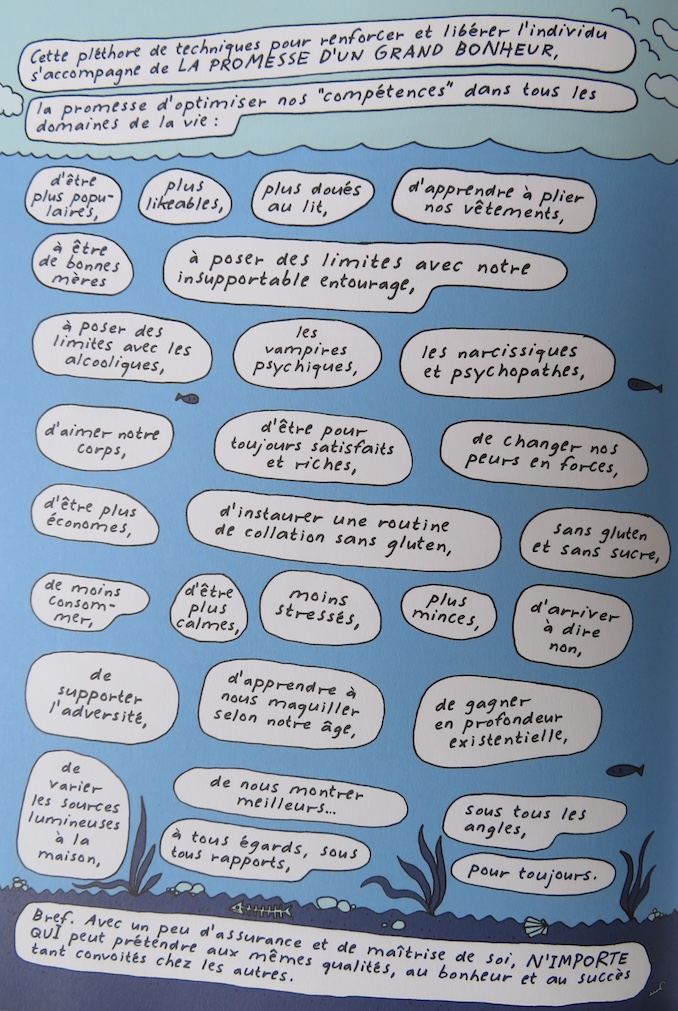 Cette pléthore de techniques pour renforcer et libérer l'individu
s'accompagne de LA PROMESSE D'UN GRAND BONHEUR,
la promesse d'optimiser nos "compétences" dans tous les
domaines de la vie :
d'être
plus popu-
laires,
plus
likeables,
plus doués
au lit,
d'apprendre à plier
nos vêtements,
à être
de bonnes
mères
à poser des limites avec notre
insupportable entourage,
à poser des
limites avec les
alcooliques,
les
vampires
psychiques,
les narcissiques
et psychopathes,
d'aimer notre
corps,
d'être pour
toujours satisfaits
et riches,
de changer nos
peurs en forces,
d'être plus
économes,
d'instaurer une routine
de collation sans gluten,
sans gluten
et sans sucre,
de moins
consom-
mer,
d'être
plus
calmes,
moins
stressés,
plus
minces,
d'arriver
à dire
non,
de
supporter
l'adversité,
d'apprendre à
nous maquiller
selon notre âge,
de gagner
en profondeur
existentielle,
de
varier
les sources
lumineuses
à la
maison,
de nous montrer
meilleurs...
à tous égards, sous
tous rapports,
sous tous les
angles,
pour toujours.
Bref. Avec un peu d'assurance et de maîtrise de soi, N'IMPORTE
QUI peut prétendre aux mêmes qualités, au bonheur et au succès
tant convoités chez les autres.